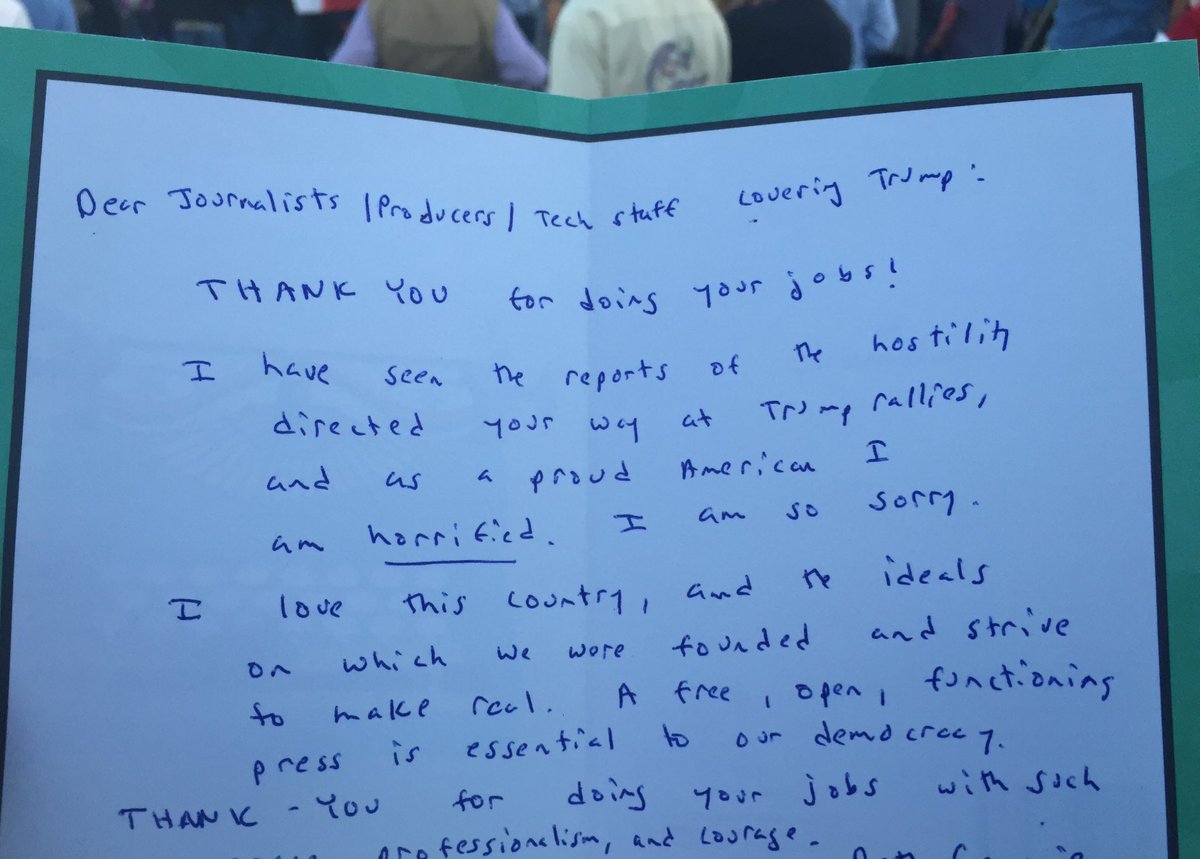 Dear Journalists /Producers/ Tech staff covering Trump:
THANK YOU for doing your jobs!
I have seen the reports of the hostility
directed your way at Trump rallies,
and as a proud American I
am horrified. I am so sorry.
I love this country, and the ideals
on which we were founded and strive
to make real. A free, open, functioning
press is essential to our democracy.
THANK-YOU for doing your jobs with such
professionalism, and courage.